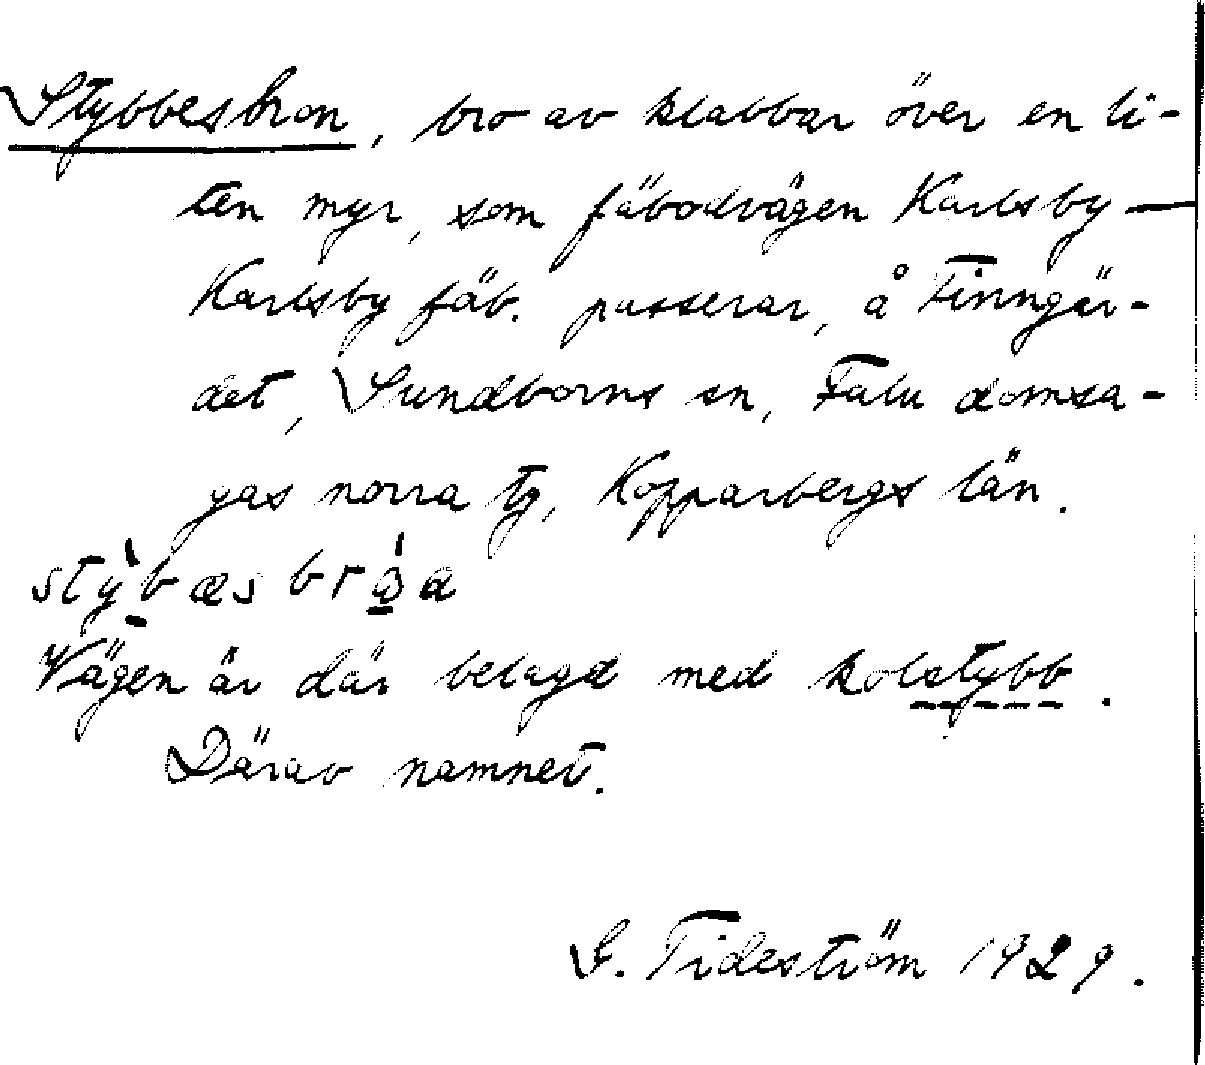 Stybbesbron, bro av klabbar över en li-
ten myr, som fäbodvägen Karlsby —
Karlsby fäb. passerar, å Finngär-
det, Sundborns sn, Falu domsa-
gas norra tg, Kopparbergs län.
Vägen är där belagd med kolstybb.
Därav namnet.
G. Tideström 1929.